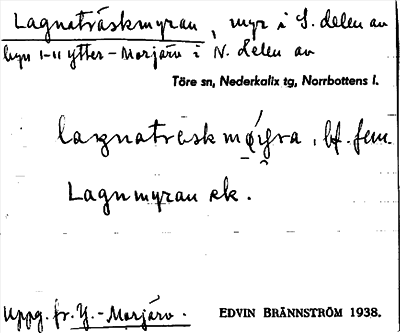 Lagnaträskmyran, myr i S. delen av
byn 1-11 Ytter-Morjärv i N. delen av
Töre sn, Nederkalix tg, Norrbottens l.
lagnaträskmǿyra, bf. fem.
Lagnmyran ek.
Uppg. fr. Y.-Morjärv.
EDVIN BRÄNNSTRÖM 1938.